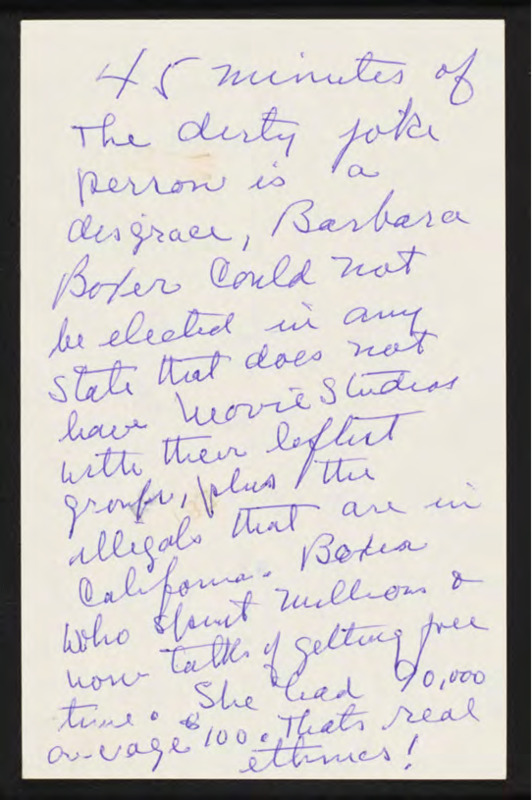 45 minutes of
The dirty joke
person is a
disgrace, Barbara
Boxer Could not
be elected in any
State that does not
have Movie Studios
with their leftist
groups, plus the
illegals that are in
California. Boxer
who spent millions &
now talks of getting free
time. She had 90,000
average 100. Thats real